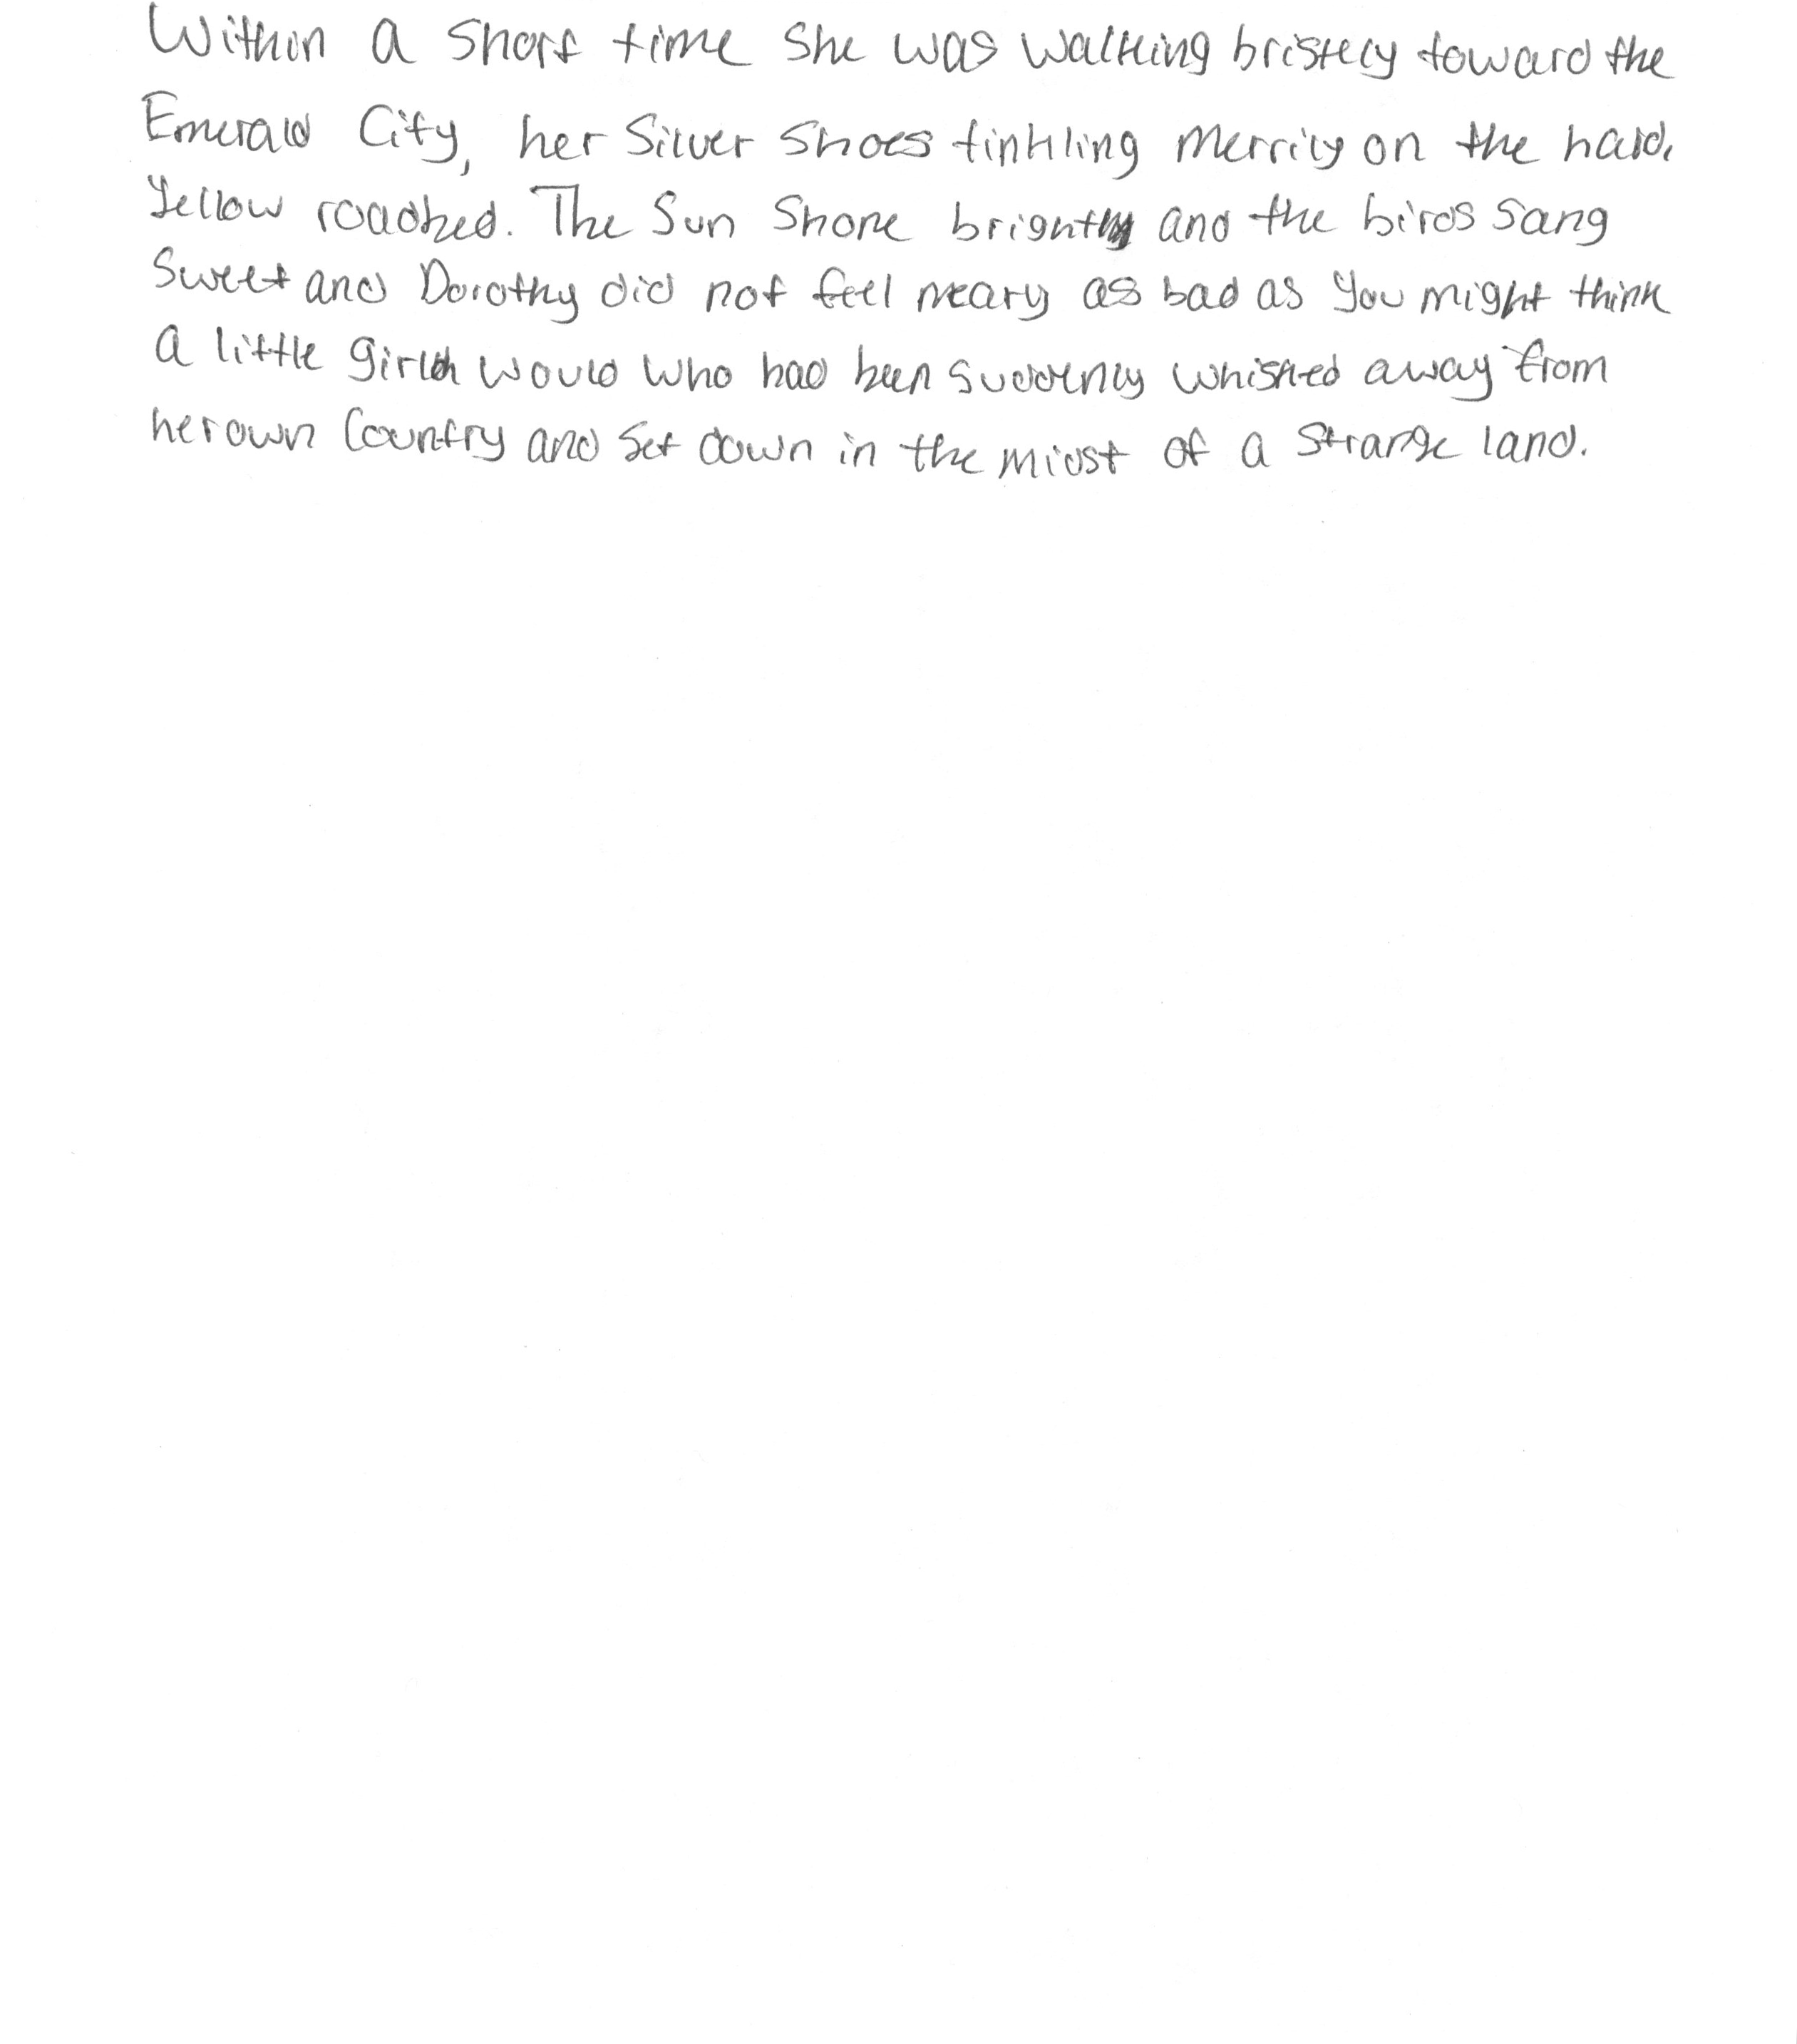 Within a short time she was walking briskly toward the
Emerald City, her Silver Shoes tinkling merrily on the hard,
yellow roadbed. The Sun Shone brightly and the birds sang
Sweet and Dorothy did not feel neary as bad as you might think
a little girl would who had been suddenly whisked away from
her own Country and set down in the midst of a strange land.